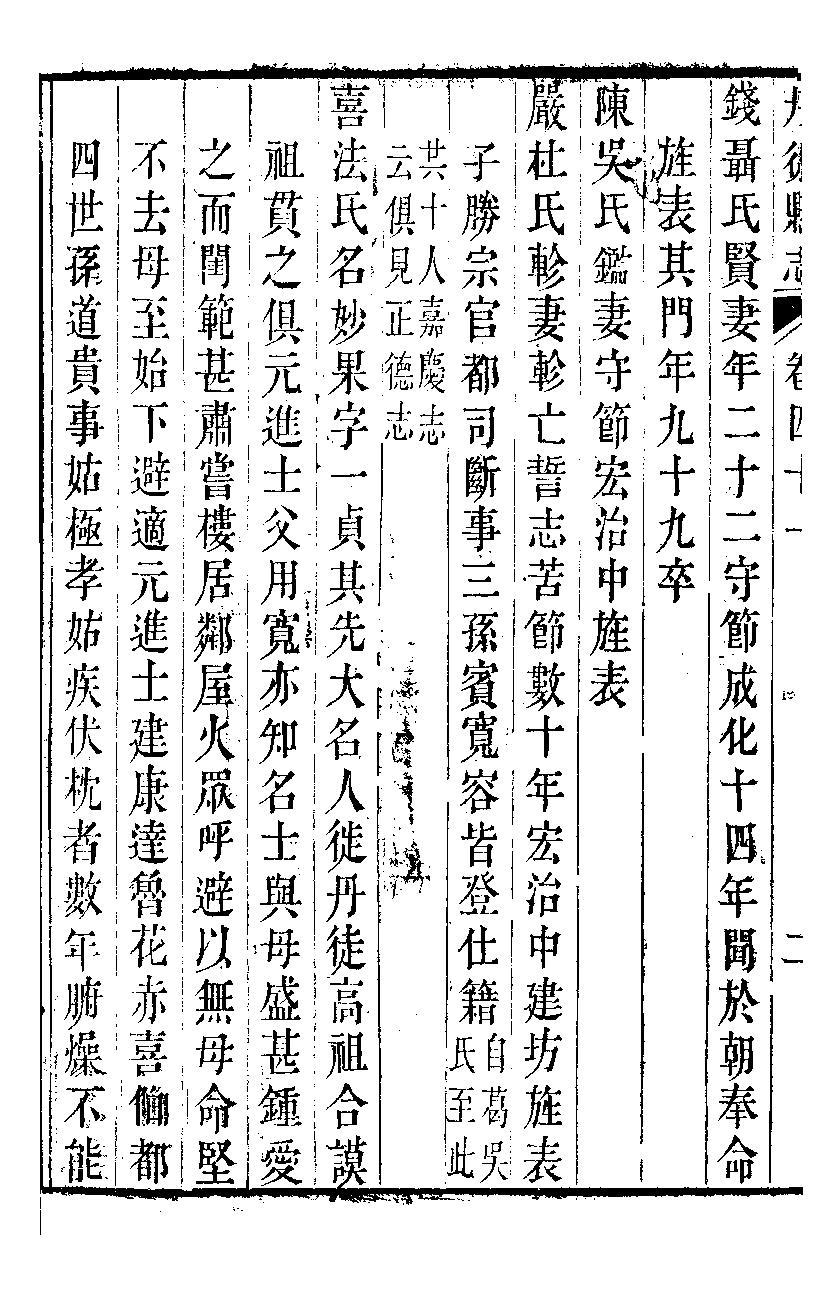 丹徒縣志　卷四十一　二
錢聶氏賢妻年二十二守節成化十四年聞於朝奉命
旌表其門年九十九卒
陳吳氏鑑妻守節宏治中旌表
嚴杜氏軫妻軫亡誓志苦節數十年宏治中建坊旌表
子勝宗官都司斷事三孫賓寬容皆登仕籍自葛吳
氏至此
共十人嘉慶志
云俱見正德志
喜法氏名妙果字一貞其先大名人徙丹徒高祖合謨
祖貫之俱元進士父用寬亦知名士與母盛甚鍾愛
之而閨範甚肅嘗樓居鄰屋火眾呼避以無母命堅
不去母至始下避適元進士建康達魯花赤喜僧都
四世孫道貴事姑極孝姑疾伏枕者數年腑燥不能